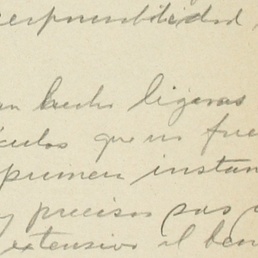 responsabilidad
an hecho ligeras
culos que no fue
primera instan
y precisos sus
extensivo el ben